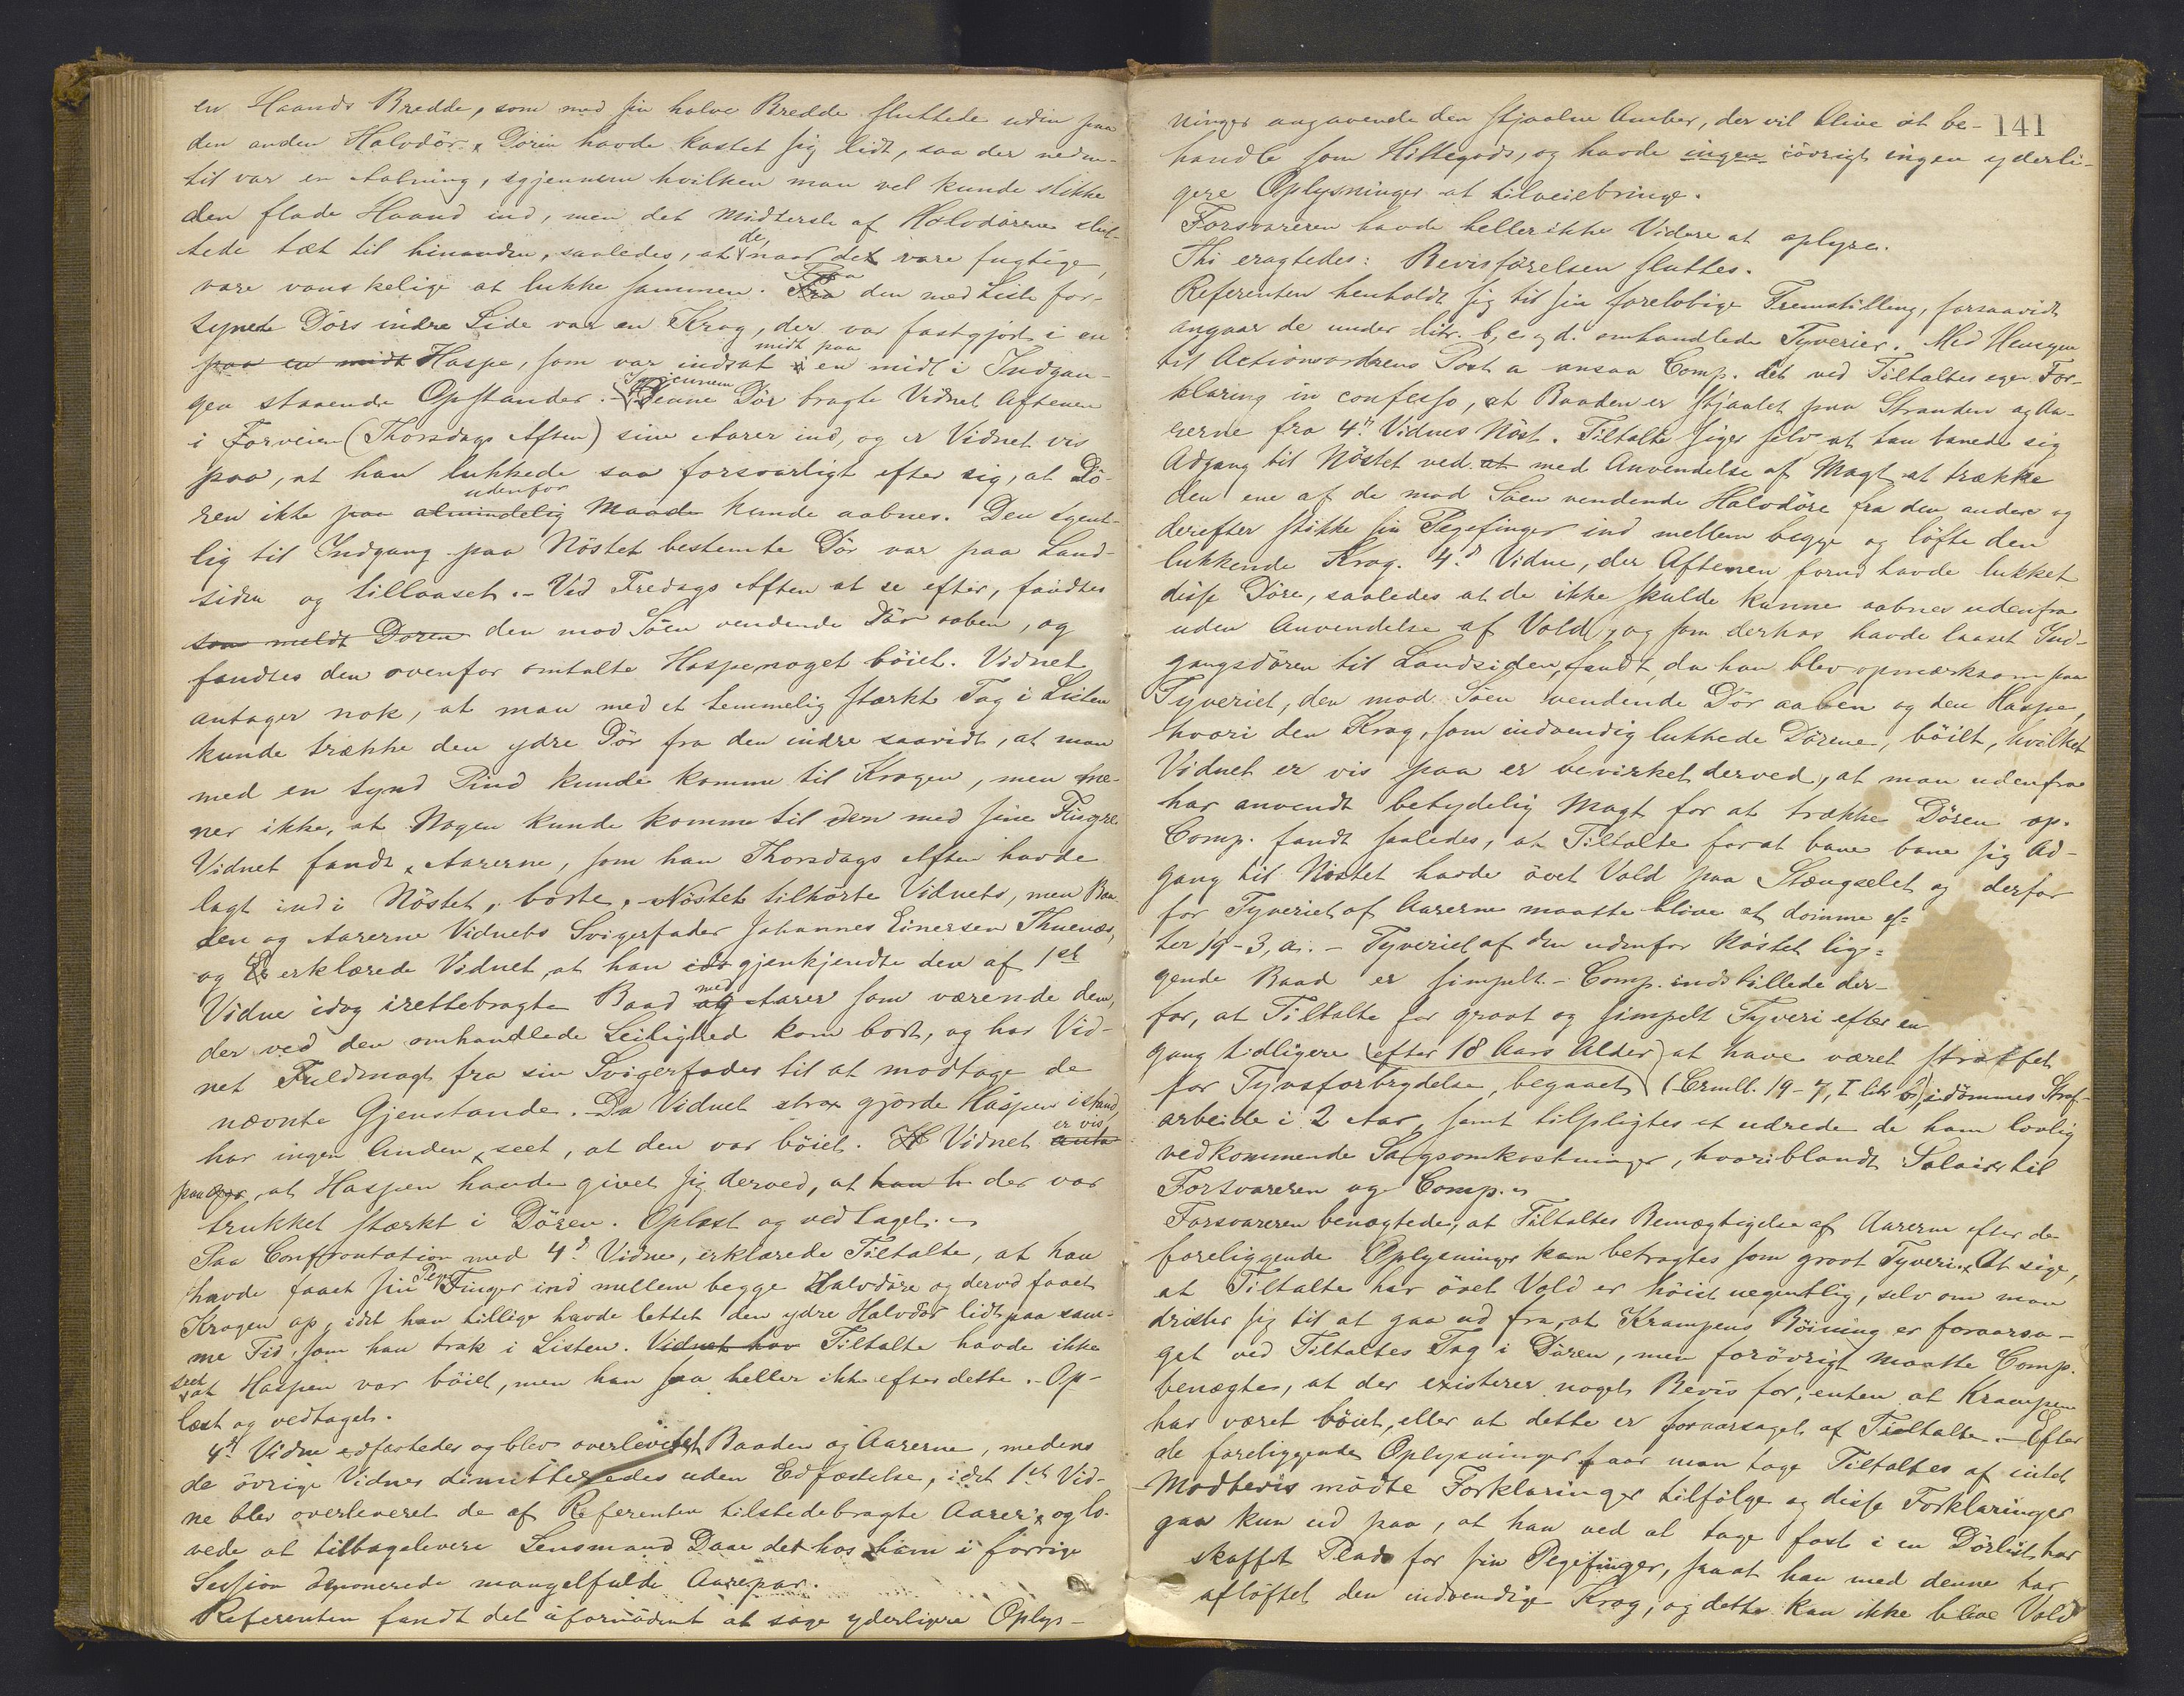 en Haands Bredde, som med sin halve Bredde sluttede uden paa
den anden Halvdör. Dören havde kastet sig lidt, saa der neden-
til var en Aabning, igjennem hvilken man vel kunde stikke
den flade Haand ind, men det Midterste af Halvdörene slut-
tede tæt til hinanden, saaledes, at de, naar det vare fugtige,
vare vanskelige at lukke sammen. Paa den med Liste for-
synede Dörs indre Side var en Krog, der var fastgjort i en
paa en midt Haspe, som var indsat i midt paa en midt i Indgan-
gen staaende Opstander. - Igjennem Denne Dör bragte Vidnet Aftenen
i Forveien (Thorsdags Aften) sine Aarer ind, og er Vidnet vis
paa, at han lukkede saa forsvarligt efter sig, at Dö-
ren ikke paa almindelig Maade udenfor kunde aabnes. Den egent-
lig til Indgang paa Nöstet bestemte Dör var paa Land-
siden og tillaaset. - Ved Fredags Aften at se efter, fandtes
saa meldt Doren den mod Söen vendende Dör aaben, og
fandtes den ovenfor omtalte Haspe noget böiet. Vidnet
antager nok, at man med et temmelig stærkt Tag i Listen
kunde trække den ydre Dör fra den indre saavidt, at man
med en tynd Pind kunde komme til Krogen, men me-
ner ikke, at Nogen kunde komme til den med sine Fingre
Vidnet fandt Aarerne, som han Thorsdags Aften havde
lagt ind i Nöstet, borte. Nöstet tilhörte Vidnets, men Baa-
den og Aarerne Vidnets Svigerfader Johannes Einersen Thuenæs,
og erklærede Vidnet, at han gjenkjendte den af 1st
Vidne idag irettebragte Baad og med Aarer som værende dem,
der ved den omhandlede Leilighed kom bort, og har Vid-
net Fuldmagt fra sin Svigerfader til at modtage de
nævnte Gjenstande. Da Vidnet strax gjorde Haspen istand,
har ingen Anden seet, at den var böiet. Vidnet er vis
paa, at Haspen havde givet sig derved, at han h der var
trukket stærkt i Dören. Oplæst og vedtaget.
Paa Confrontation med 4de Vidne, erklærede Tiltalte, at han
havde faaet sin Pege Finger ind mellem begge Halvdöre og derved faaet
Krogen op, idet han tillige havde lettet den ydre Halvdör lidt paa sam-
me Tid, som han trak i Listen. Vidnet har Tiltalte havde ikke
seet at Haspen var böiet, men han saa heller ikke efter dette. - Op-
læst og vedtaget.
4de Vidne edfæstedes og blev overleveret Baaden og Aarerne, medens
de övrige Vidner dimitteredes uden Edfæstelse, idet 1ste Vid-
ne blev overleveret de af Referenten tilstedebragte Aarer, og lo-
vede at tilbagelevere Lensmand Daae det hos ham i forrige
Session deponerede mangelfulde Aarepar.
Referenten fandt det ufornödent at søge yderligere Oplys-
141
ninger angaaende den stjaalne Amber, der vil blive at be-
handle som Hittegods, og havde ingen iövrigt ingen yderli-
gere Oplysninger at tilveiebringe.
Forsvareren havde heller ikke Videre at oplyse.
Thi eragtedes: Bevisförelsen sluttes.
Referenten henholdt sig til sin forelöbige Fremstilling, forsaavidt
angaar de under litr. b, c og d. omhandlede Tyverier. Med Hensyn
til Actionsordrens Post a ansaa Comp. det ved Tiltaltes egen For-
klaring in confesso, at Baaden er stjaalet paa Stranden og Aa-
rerne fra 4de Vidnes Nöst. Tiltalte siger selv at han banede sig
Adgang til Nöstet ved at med Anvendelse af Magt at trække
den ene af de mod Söen vendende Halvdöre fra den anden og
derefter stikke sin Pegefinger ind mellem begge og löfte den
lukkende Krog. 4de Vidne, der Aftenen forud havde lukket
disse Döre, saaledes at de ikke skulde kunne aabnes udenfra
uden Anvendelse af Vold, og som derhos havde laaset Ind-
gangsdören til Landsiden, fandt, da han blev opmærksom paa
Tyveriet, den mod Söen vendende Dör aaben og den Haspe,
hvori den Krog, som indvendig lukkede Dörene, böiet, hvilket
Vidnet er vis paa er bevirket derved, at man udenfra
har anvendt betydelig Magt for at trække Dören op.
Comp. fandt saaledes, at Tiltalte for at bane bane sig Ad-
gang til Nöstet havde övet Vold paa Stængselet og derfor
for Tyveriet af Aarerne maatte blive at dömme ef-
ter 19-3, a. - Tyveriet af den udenfor Nöstet lig-
gende Baad er simpelt. - Comp. indstillede der-
for, at Tiltalte for grovt og simpelt Tyveri efter en
gang tidligere (efter 18 Aars Alder) at have været straffet
for Tyvsforbrydelse, begaaet (Crmll. 19-7, I litr b), idömmes Straf-
arbeide i 2 Aar, samt tilpligtes at udrede de ham lovlig
vedkommende Sagsomkostninger, hvoriblandt Salairer til
Forsvareren og Comp.
Forsvareren benægtede, at Tiltaltes Bemægtigelse af Aarerne efter de
foreliggende Oplysninger kan betragtes som grovt Tyveri. At sige,
at Tiltalte har övet Vold er höist uegentlig, selv om man
drister sig til at gaa ud fra, at Krampens Böining er foraarsa-
get ved Tiltaltes Tag i Dören, men forövrigt maatte Comp.
benægte, at der existerer noget Bevis for, enten at Krampen
har været böiet, eller at dette er foraarsaget af Tiltalte. - Efter
de foreliggende Oplysninger faar man tage Tiltaltes af intet
Modbevis mödte Forklaringer tilfölge og disse Forklaringer
gaar kun ud paa, at han ved at tage fast i en Dörlist har
skaffet Plads for sin Pegefinger, saa at han med denne har
aflöftet den indvendige Krog, og dette kan ikke blive Vold